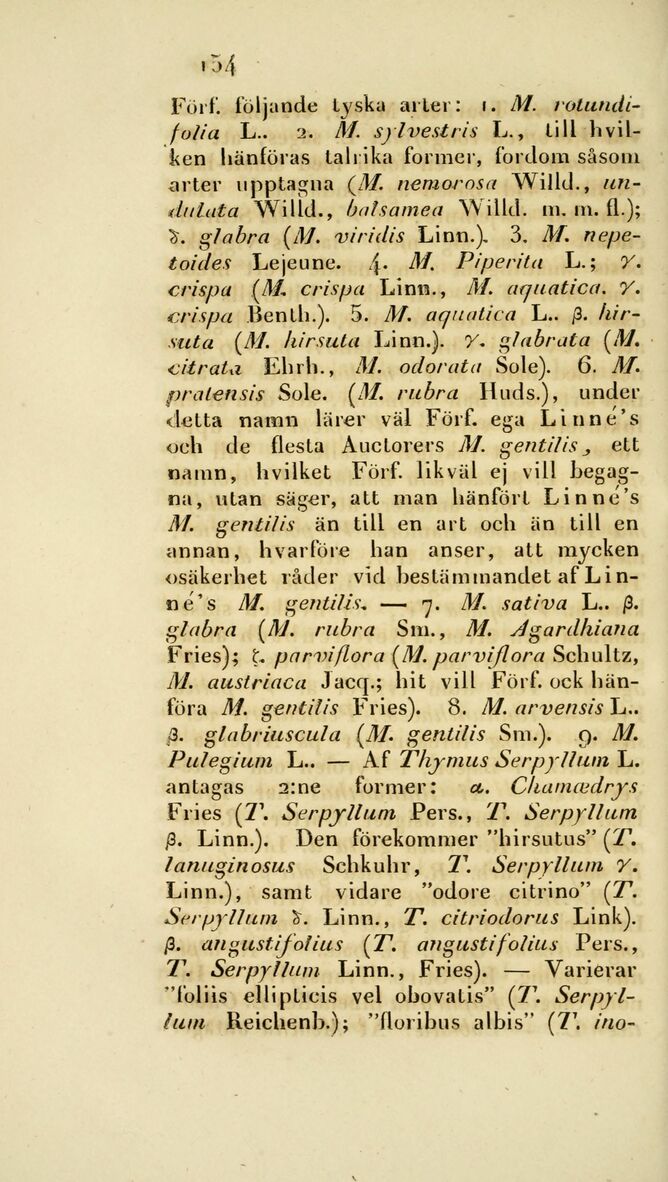 154
Förf. följande tyska arter: 1. M. rotundi-
folia L.. 2. M. sylvestris L., till hvil-
ken hänföras talrika former, fordom såsom
arter upptagna (M. nemorosa Willd., un-
dulata Willd., balsamea Willd. m. m. fl.);
δ. glabra (M. viridis Linn.). 3. M. nepe-
toides Lejeune. 4. M. Piperita L.; γ.
crispa (M. crispa Linn., M. aquatica. γ.
crispa Benth.). 5. M. aquatica L.. β. hir-
suta (M. hirsuta Linn.). γ. glabrata (M.
citrata Ehrh., M. odorata Sole). 6. M.
pratensis Sole. (M. rubra Huds.), under
detta namn lärer väl Förf. ega Linné's
och de flesta Auctorers M. gentilis, ett
namn, hvilket Förf. likväl ej vill begag-
na, utan säger, att man hänfört Linné's
M. gentilis än till en art och än till en
annan, hvarföre han anser, att mycken
osäkerhet råder vid bestämmandet af Lin-
né's M. gentilis. — 7. M. sativa L.. β.
glabra (M. rubra Sm., M. Agardhiana
Fries); ζ. parviflora (M. parviflora Schultz,
M. austriaca Jacq.; hit vill Förf. ock hän-
föra M. gentilis Fries). 8. M. arvensis L..
β. glabriuscula (M. gentilis Sm.). 9. M.
Pulegium L.. — Af Thymus Serpyllum L.
antagas 2:ne former: α. Chamædrys
Fries (T. Serpyllum Pers., T. Serpyllum
β. Linn.). Den förekommer "hirsutus" (T.
lanuginosus Schkuhr, T. Serpyllum γ.
Linn.), samt vidare "odore citrino" (T.
Serpyllum δ. Linn., T. citriodorus Link).
β. angustifolius (T. angustifolius Pers.,
T. Serpyllum Linn., Fries). — Varierar
"foliis ellipticis vel obovatis" (T. Serpyl-
lum Reichenb.); "floribus albis" (T. ino-